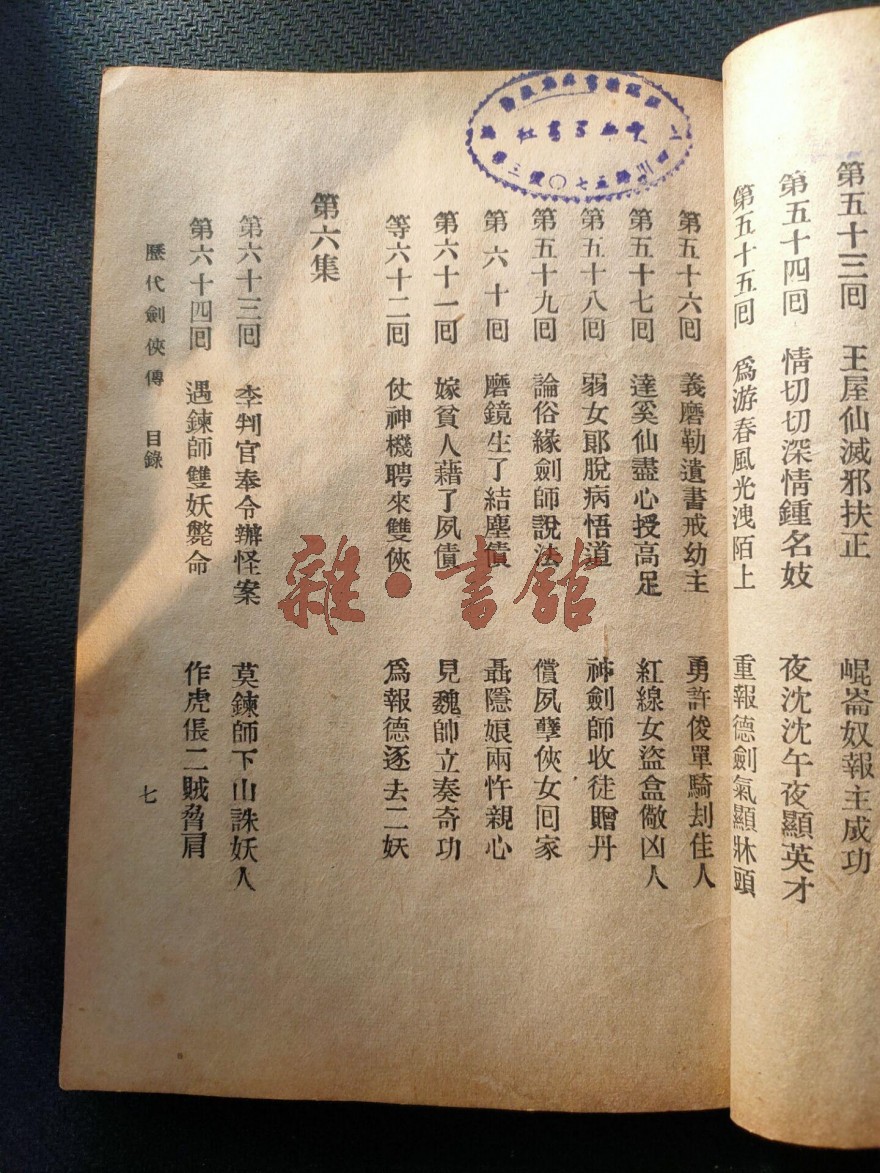 第五十三囘 王屋仙滅邪扶正 崐崙奴報主成功
第五十四囘 情切切深情鍾名妓 夜沈沈午夜顯英才
第五十五囘 爲游春風光洩陌上 重報德劍氣顯牀頭
第五十六囘 義磨勒遺書戒幼主 勇許俊單騎刦佳人
第五十七囘 達奚仙盡心授高足 紅線女盜盒儆凶人
第五十八囘 弱女郞脫病悟道 神劍師收徒贈丹
第五十九囘 論俗緣劍師說法 償夙孽俠女囘家
第六十囘 磨鏡生了結塵債 聶隱娘兩忤親心
第六十一囘 嫁貧人藉了夙債 見魏帥立奏奇功
等六十二囘 仗神機聘來雙俠 爲報德逐去二妖
第六集
第六十三囘 李判官奉令辦怪案 莫鍊師下山誅妖人
第六十四囘 遇鍊師雙妖斃命 作虎倀二賊脅肩
歷代劍俠傳 目錄 七
雜·書館